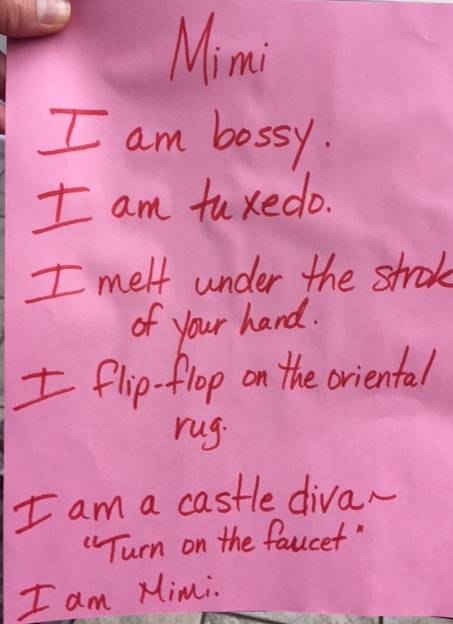 Mimi
I am bossy.
I am tuxedo.
I melt under the strok
of your hand.
I flip-flop on the oriental
rug.
I am a castle diva~
"Turn on the faucet"
I am Mimi.